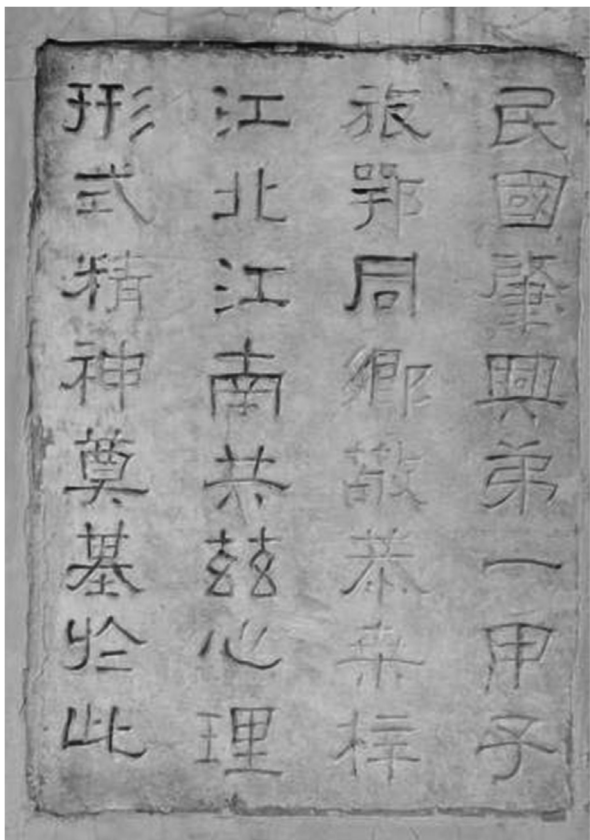 民國肇興弟一甲子
旅鄂同鄉敬恭桒梓
江北江南共茲心理
形式精神奠基於此